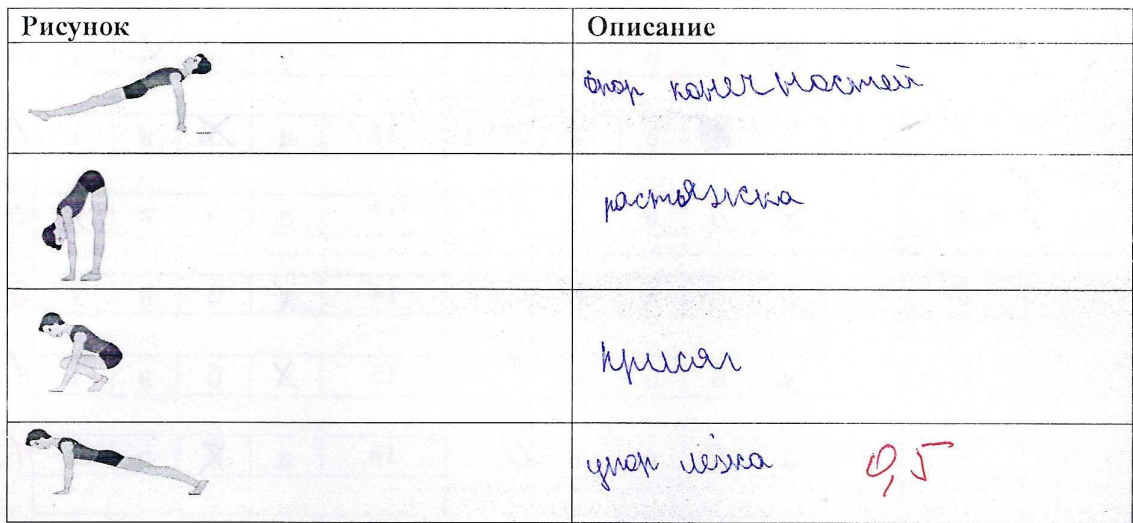 Рисунок Описание
опор конечностей
растяжка
присяд
упор лёжа
0,5